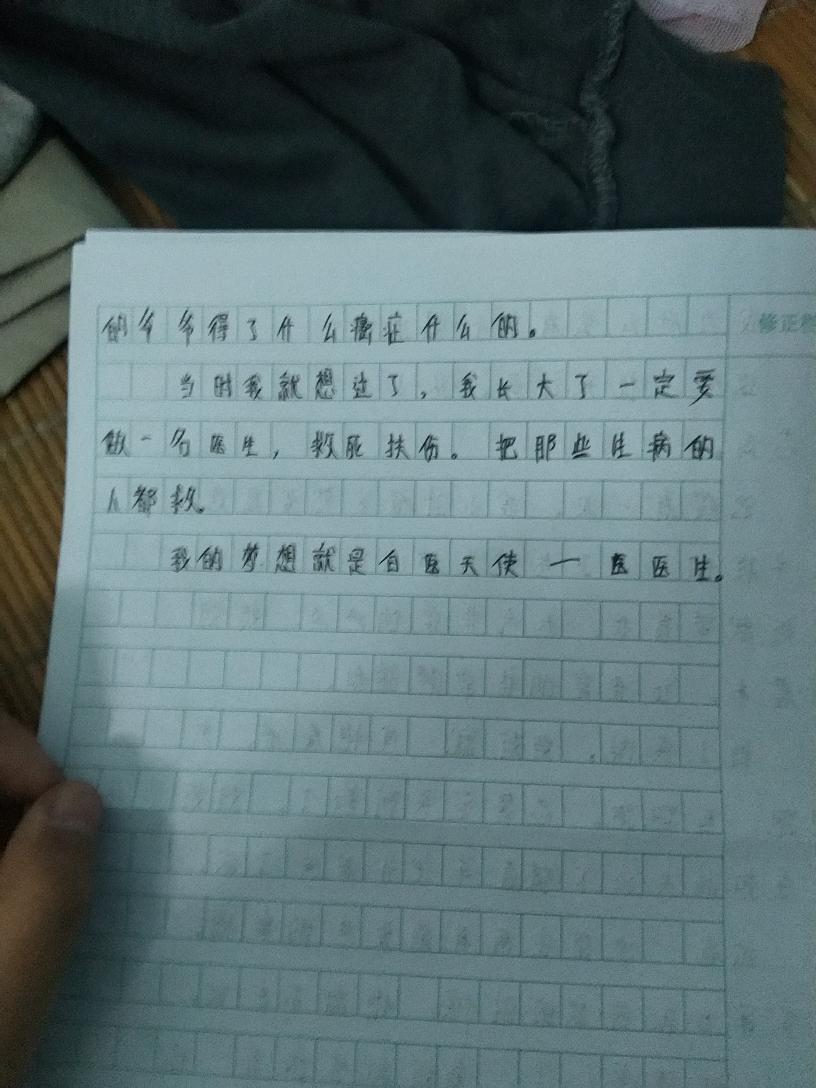 的爷爷得了什么癌症什么的。
修正栏
当时我就想过了，我长大了一定要
做一名医生，救死扶伤。把那些生病的
人都救。
我的梦想就是白医天使一医医生。